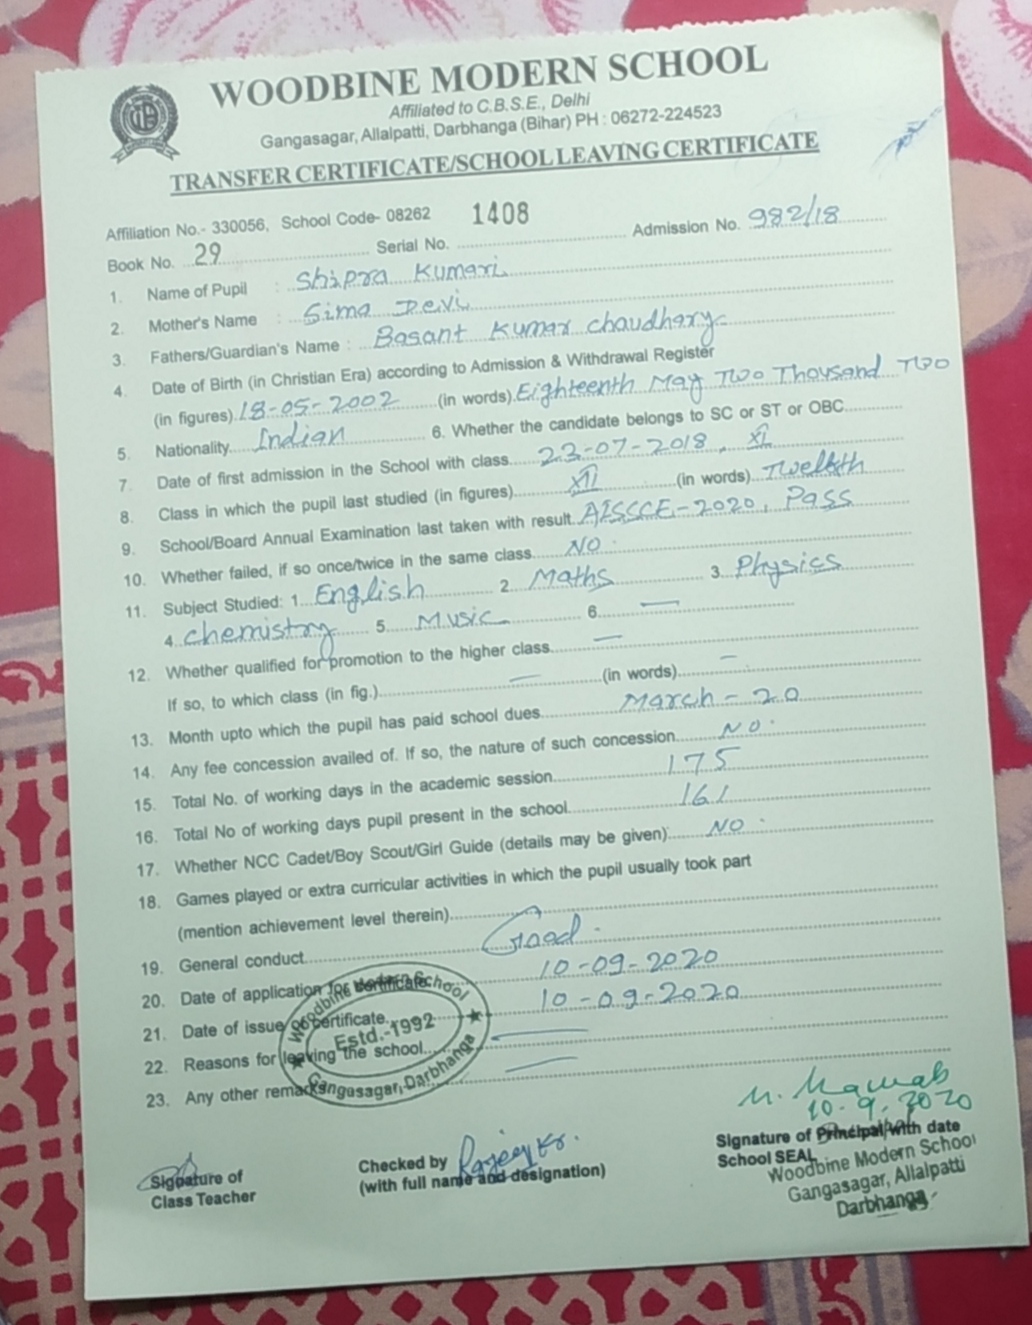 WOODBINE MODERN SCHOOL
Affiliated to C.B.S.E., Delhi
Gangasagar, Allalpatti, Darbhanga (Bihar) PH : 06272-224523
TRANSFER CERTIFICATE/SCHOOL LEAVING CERTIFICATE
Affiliation No.- 330056, School Code- 08262 1408
Book No. 29 Serial No. Admission No. 982/18
1. Name of Pupil : Shipra Kumari
2. Mother's Name : Sima Devi
3. Fathers/Guardian's Name : Basant Kumar Chaudhary
4. Date of Birth (in Christian Era) according to Admission & Withdrawal Register
(in figures) 18-05-2002 (in words) Eighteenth May Two Thousand Two
5. Nationality Indian 6. Whether the candidate belongs to SC or ST or OBC
7. Date of first admission in the School with class 23-07-2018, XI
8. Class in which the pupil last studied (in figures) XII (in words) Twelfth
9. School/Board Annual Examination last taken with result AISSCE-2020, Pass
10. Whether failed, if so once/twice in the same class NO
11. Subject Studied: 1. English 2. Maths 3. Physics
4. Chemistry 5. Music 6. —
12. Whether qualified for promotion to the higher class —
If so, to which class (in fig.) — (in words) —
13. Month upto which the pupil has paid school dues March - 20
14. Any fee concession availed of. If so, the nature of such concession NO
15. Total No. of working days in the academic session 175
16. Total No of working days pupil present in the school 161
17. Whether NCC Cadet/Boy Scout/Girl Guide (details may be given) NO
18. Games played or extra curricular activities in which the pupil usually took part
(mention achievement level therein)
19. General conduct Good
20. Date of application for certificate 10-09-2020
21. Date of issue of certificate 10-09-2020
22. Reasons for leaving the school —
23. Any other remarks —
Woodbine Modern School
Estd.-1992
Gangasagar, Darbhanga
10-9-2020
Signature of Class Teacher
Checked by Rajeev Kr.
(with full name and designation)
Signature of Principal with date
School SEAL
Woodbine Modern School
Gangasagar, Allalpatti
Darbhanga